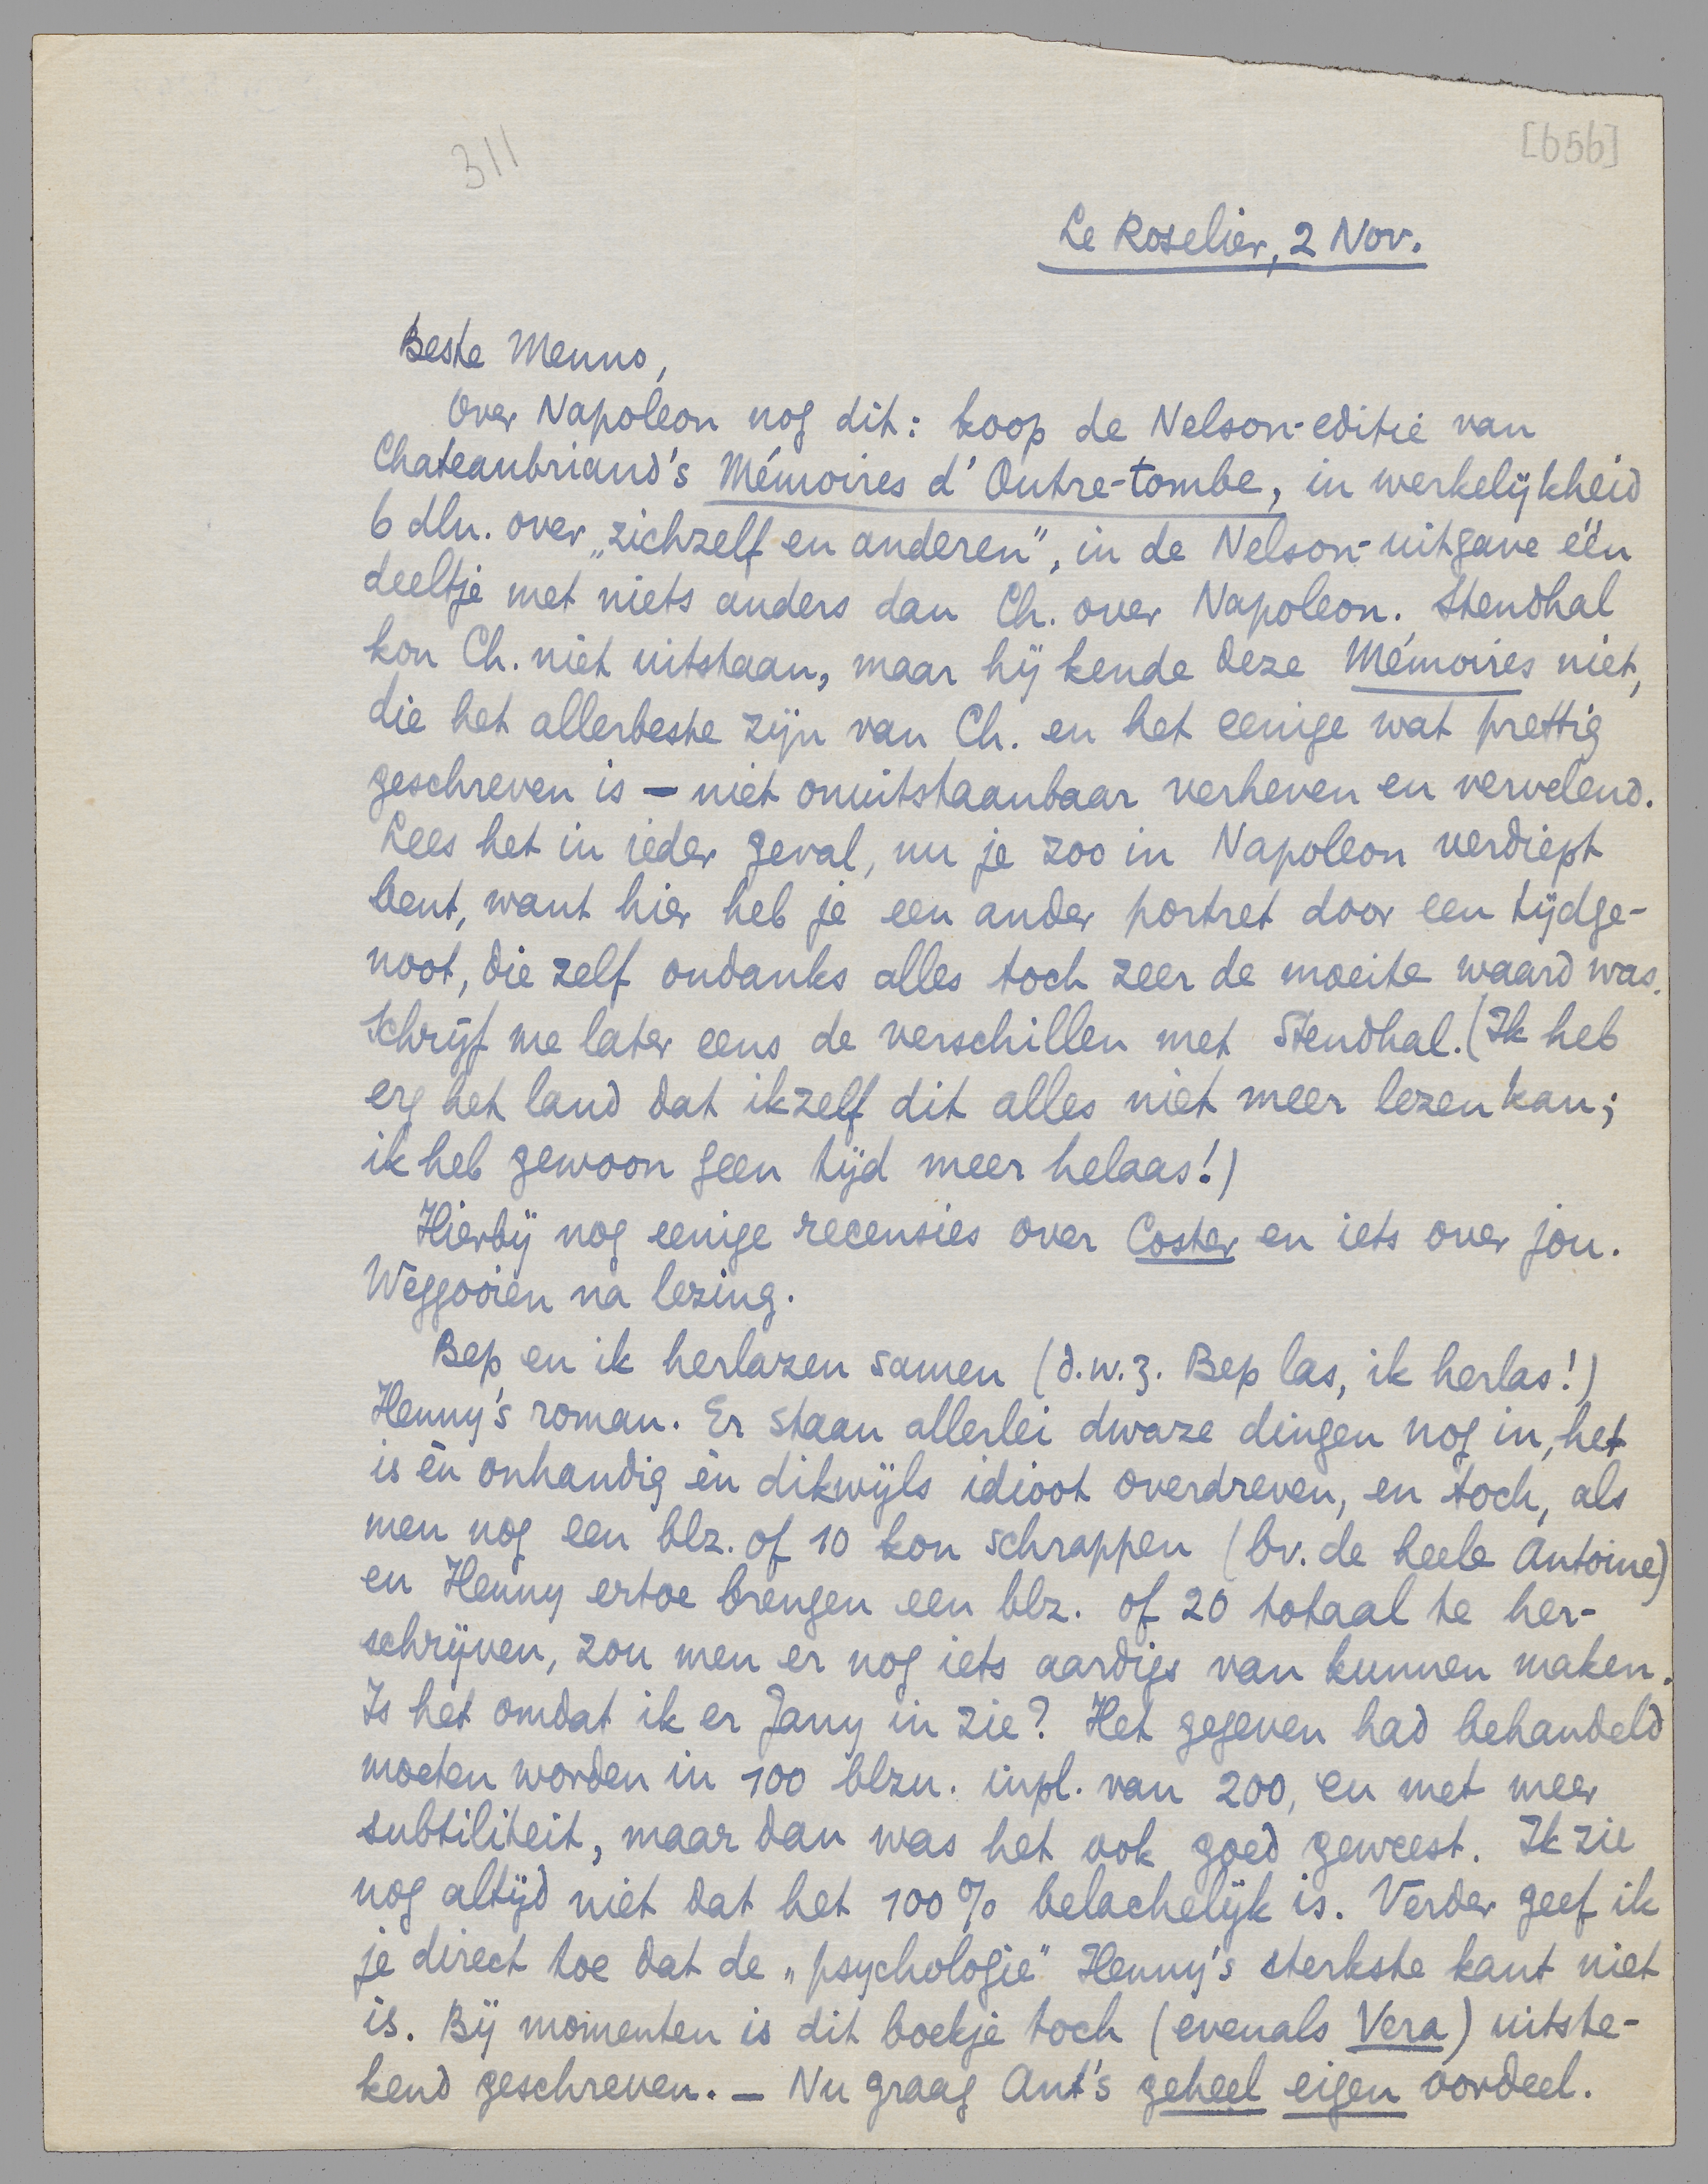 311
[656]
Le Roselier, 2 Nov.
Beste Menno,
Over Napoleon nog dit: koop de Nelson-editie van
Chateaubriand's Mémoires d'Outre-tombe, in werkelijkheid
6 dln. over „zichzelf en anderen", in de Nelson-uitgave één
deeltje met niets anders dan Ch. over Napoleon. Stendhal
kon Ch. niet uitstaan, maar hij kende deze Mémoires niet,
die het allerbeste zijn van Ch. en het eenige wat prettig
geschreven is — niet onuitstaanbaar verheven en vervelend.
Lees het in ieder geval, nu je zoo in Napoleon verdiept
bent, want hier heb je een ander portret door een tijdge-
noot, die zelf ondanks alles toch zeer de moeite waard was.
Schrijf me later eens de verschillen met Stendhal. (Ik heb
erg het land dat ikzelf dit alles niet meer lezen kan;
ik heb gewoon geen tijd meer helaas!)
Hierbij nog eenige recensies over Coster en iets over jou.
Weggooien na lezing.
Bep en ik herlazen samen (d.w.z. Bep las, ik herlas!)
Henny's roman. Er staan allerlei dwaze dingen nog in, het
is èn onhandig èn dikwijls idioot overdreven, en toch, als
men nog een blz. of 10 kon schrappen (bv. de heele Antoine)
en Henny ertoe brengen een blz. of 20 totaal te her-
schrijven, zou men er nog iets aardigs van kunnen maken.
Is het omdat ik er Jany in zie? Het gegeven had behandeld
moeten worden in 100 blzn. inpl. van 200, en met meer
subtiliteit, maar dan was het ook goed geweest. Ik zie
nog altijd niet dat het 100% belachelijk is. Verder geef ik
je direct toe dat de „psychologie" Henny's sterkste kant niet
is. Bij momenten is dit boekje toch (evenals Vera) uitste-
kend geschreven. — Nu graag Ant's geheel eigen oordeel.